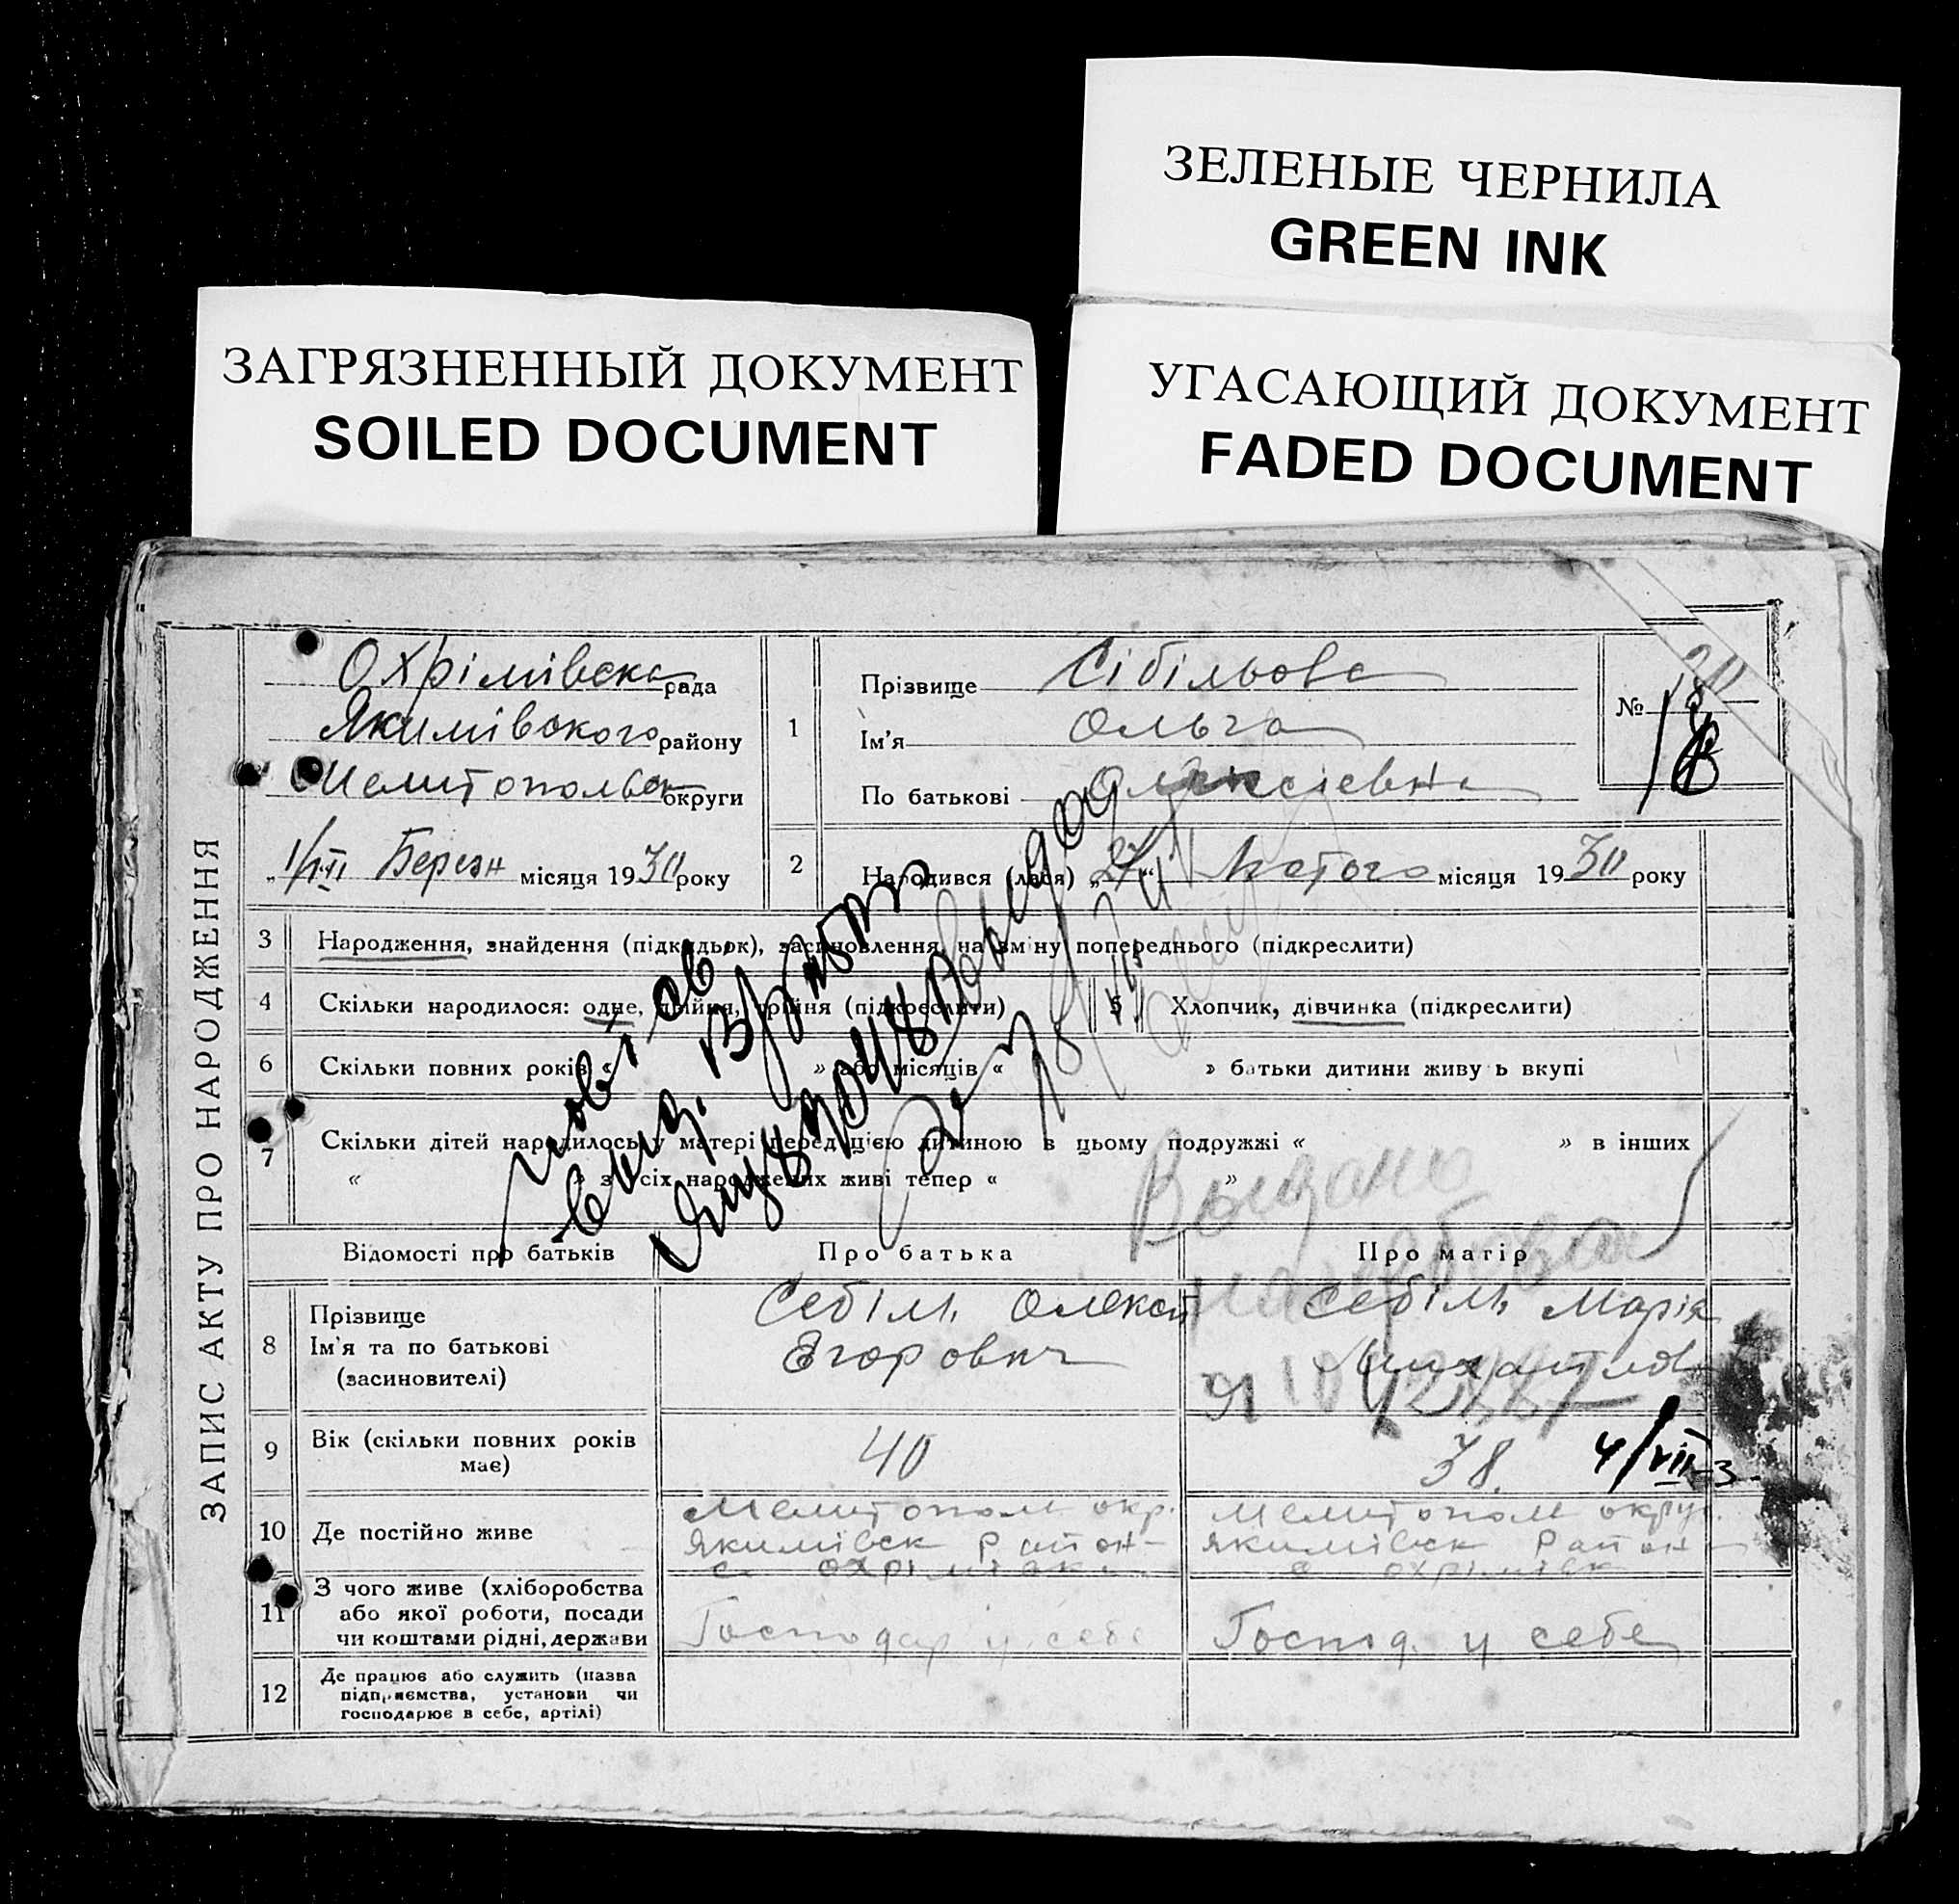 ЗЕЛЕНЫЕ ЧЕРНИЛА
GREEN INK
ЗАГРЯЗНЕННЫЙ ДОКУМЕНТ
SOILED DOCUMENT
УГАСАЮЩИЙ ДОКУМЕНТ
FADED DOCUMENT
ЗАПИС АКТУ ПРО НАРОДЖЕННЯ
Охрімівска рада
Якимівского району
округи
Березн місяця 1930 року
1 Прізвище Сібільова
Ім'я Ольга
По батькові
№ 18
2 Народився (лася) „27“ Лютого місяця 1930 року
3 Народження, знайдення (підкидьок), засиновлення, на зміну попереднього (підкреслити)
4 Скільки народилося: одне, двійня, трійня (підкреслити)
5 Хлопчик, дівчинка (підкреслити)
6 Скільки повних років « » або місяців « » батьки дитини живуть вкупі
7 Скільки дітей народилось у матері перед цією дитиною в цьому подружжі « » в інших
« » з усіх народжених живі тепер « »
Выдано
Відомості про батьків Про батька Про матір
8 Прізвище
Ім'я та по батькові
(засиновителі)
Себіль Олексій
Егорович
Себіль Марія
9 Вік (скільки повних років
має)
40
38.
4/VII-3
10 Де постійно живе
Мелитопол окр.
Якимівск Район
с Охрімівка
Мелитопол округ.
Якимівск Район
с Охрімівк
11 З чого живе (хліборобства
або якої роботи, посади
чи коштами рідні, держави
Господар у себе
Господ. у себе
12 Де працює або служить (назва
підприємства, установи чи
господарює в себе, артілі)